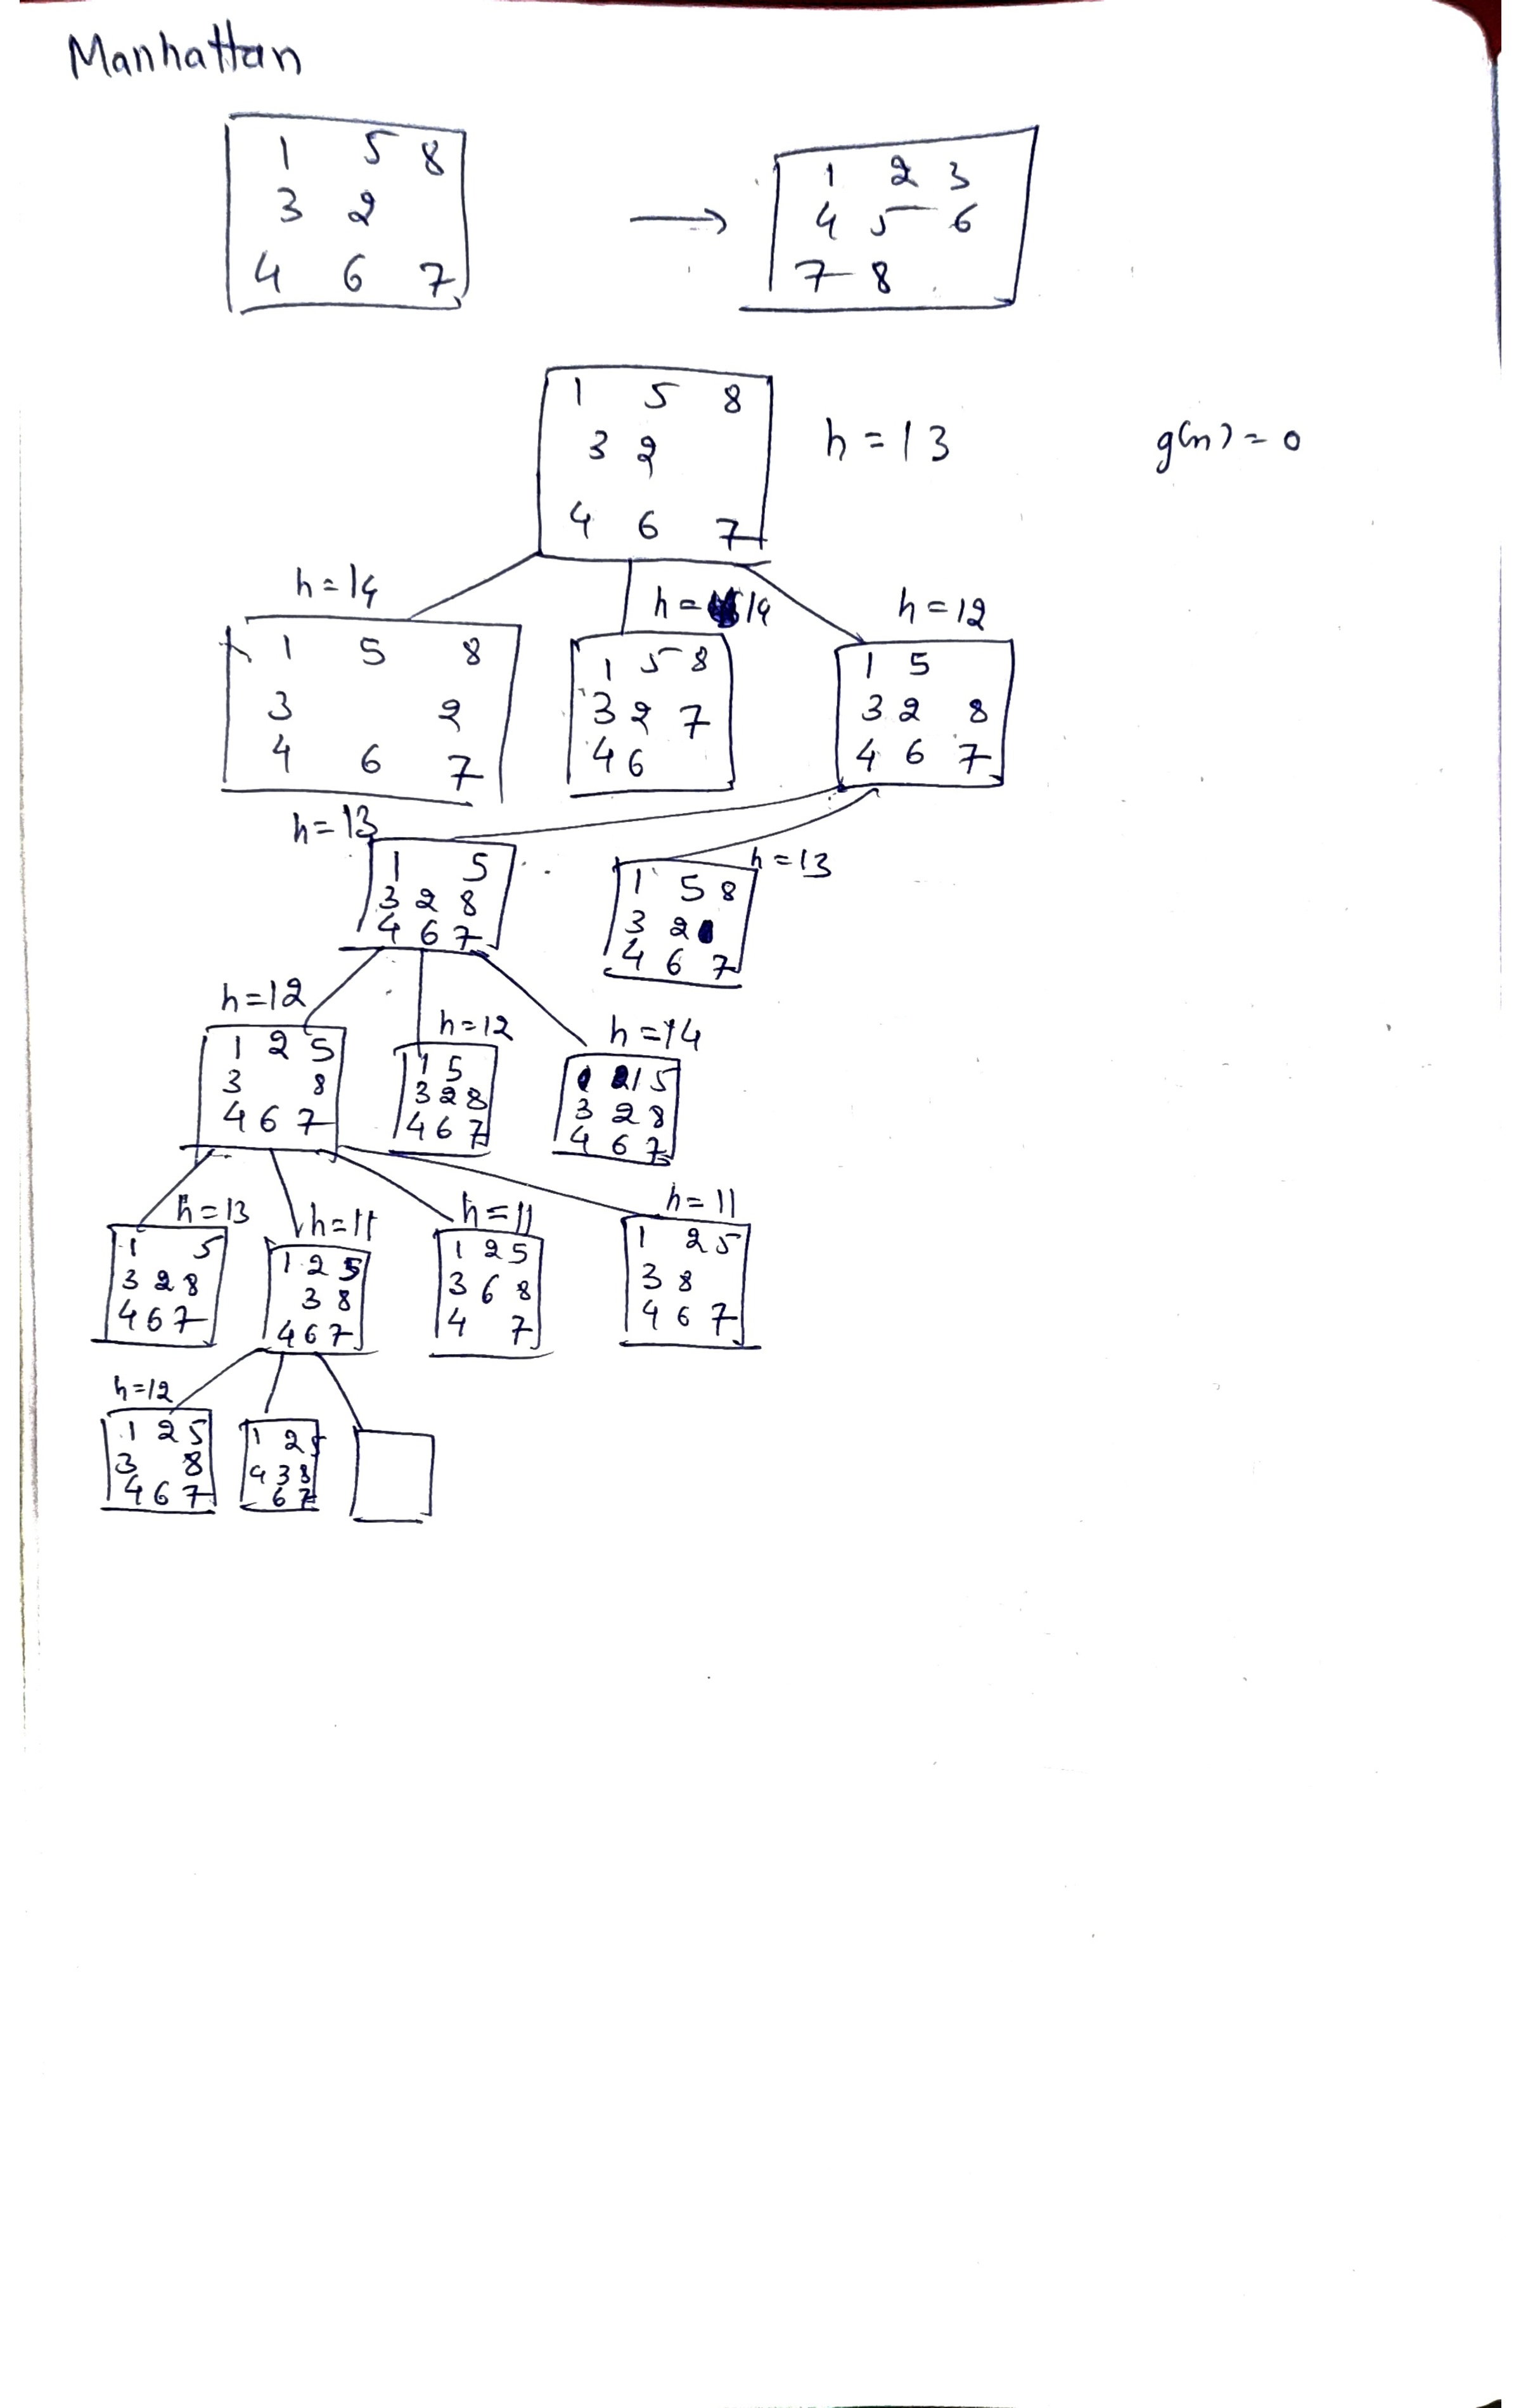 Manhattan
1 5 8
3 2
4 6 7
→
1 2 3
4 5 6
7 8
1 5 8
3 2
4 6 7
h = 13
g(n) = 0
h = 14
1 5 8
3 2
4 6 7
h = 14
1 5 8
3 2 7
4 6
h = 12
1 5
3 2 8
4 6 7
h = 13
1 5
3 2 8
4 6 7
h = 13
1 5 8
3 2
4 6 7
h = 12
1 2 5
3 8
4 6 7
h = 12
1 5
3 2 8
4 6 7
h = 14
1 5
3 2 8
4 6 7
h = 13
1 5
3 2 8
4 6 7
h = 11
1 2 5
3 8
4 6 7
h = 11
1 2 5
3 6 8
4 7
h = 11
1 2 5
3 8
4 6 7
h = 12
1 2 5
3 8
4 6 7
1 2 5
4 3 8
6 7